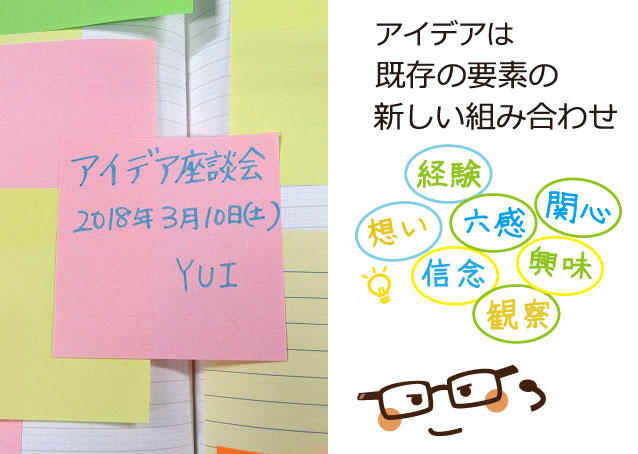 アイデア座談会
2018年3月10日(土)
YUI
アイデアは
既存の要素の
新しい組み合わせ
経験
想い
六感
関心
信念
興味
観察